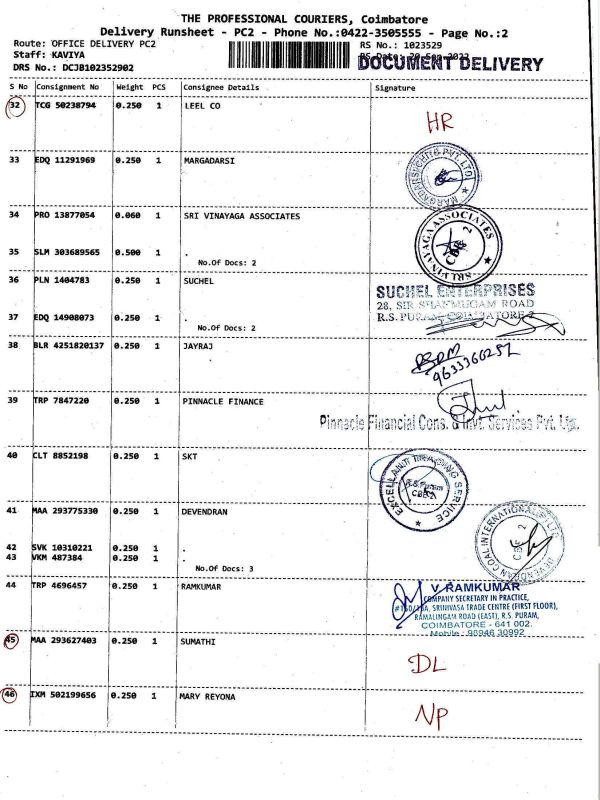 THE PROFESSIONAL COURIERS, Coimbatore
Delivery Runsheet - PC2 - Phone No.:0422-3505555 - Page No.:2
Route: OFFICE DELIVERY PC2
RS No.: 1023529
Staff: KAVIYA
DRS No.: DCJB102352902
DOCUMENT DELIVERY
S No Consignment No Weight PCS Consignee Details Signature
32 TCG 50238794 0.250 1 LEEL CO
HR
33 EDQ 11291969 0.250 1 MARGADARSI
34 PRO 13877054 0.060 1 SRI VINAYAGA ASSOCIATES
SRI VINAYAGA ASSOCIATES
CBE 2
35 SLM 303689565 0.500 1 .
No.Of Docs: 2
36 PLN 1404783 0.250 1 SUCHEL
SUCHEL ENTERPRISES
28, SIR SHANMUGAM ROAD
R.S. PURAM, COIMBATORE 2
37 EDQ 14908073 0.250 1 .
No.Of Docs: 2
38 BLR 4251820137 0.250 1 JAYRAJ
39 TRP 7847220 0.250 1 PINNACLE FINANCE
Pinnacle Financial Cons. & Invt. Services Pvt. Ltd.
40 CLT 8852198 0.250 1 SKT
EXCELLANT TRADING SERVICE
R.S.Puram
CBE-2
41 MAA 293775330 0.250 1 DEVENDRAN
DEVENDRAN COAL INTERNATIONAL P LTD
CBE 2
42 SVK 10310221 0.250 1 .
43 VKM 487384 0.250 1 .
No.Of Docs: 3
44 TRP 4696457 0.250 1 RAMKUMAR
V. RAMKUMAR
COMPANY SECRETARY IN PRACTICE,
SRINIVASA TRADE CENTRE (FIRST FLOOR),
RAMALINGAM ROAD (EAST), R.S. PURAM,
COIMBATORE - 641 002.
Mobile : 98946 30992
45 MAA 293627403 0.250 1 SUMATHI
DL
46 IXM 502199656 0.250 1 MARY REYONA
NP